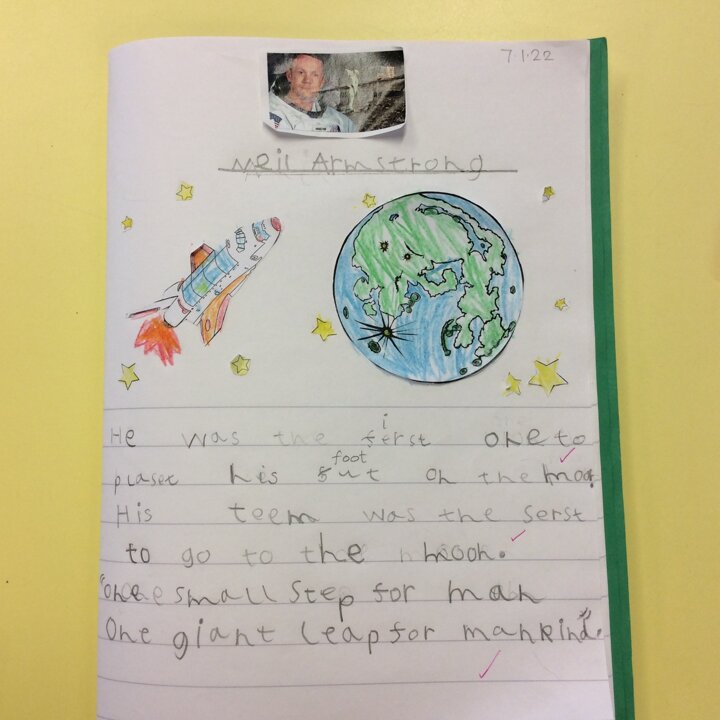 7.1.22
Neil Armstrong
i
He was the ferst one to
foot
plaset his fut on the moon
His teem was the serst
to go to the moon.
"one small step for man
One giant leap for mankind".